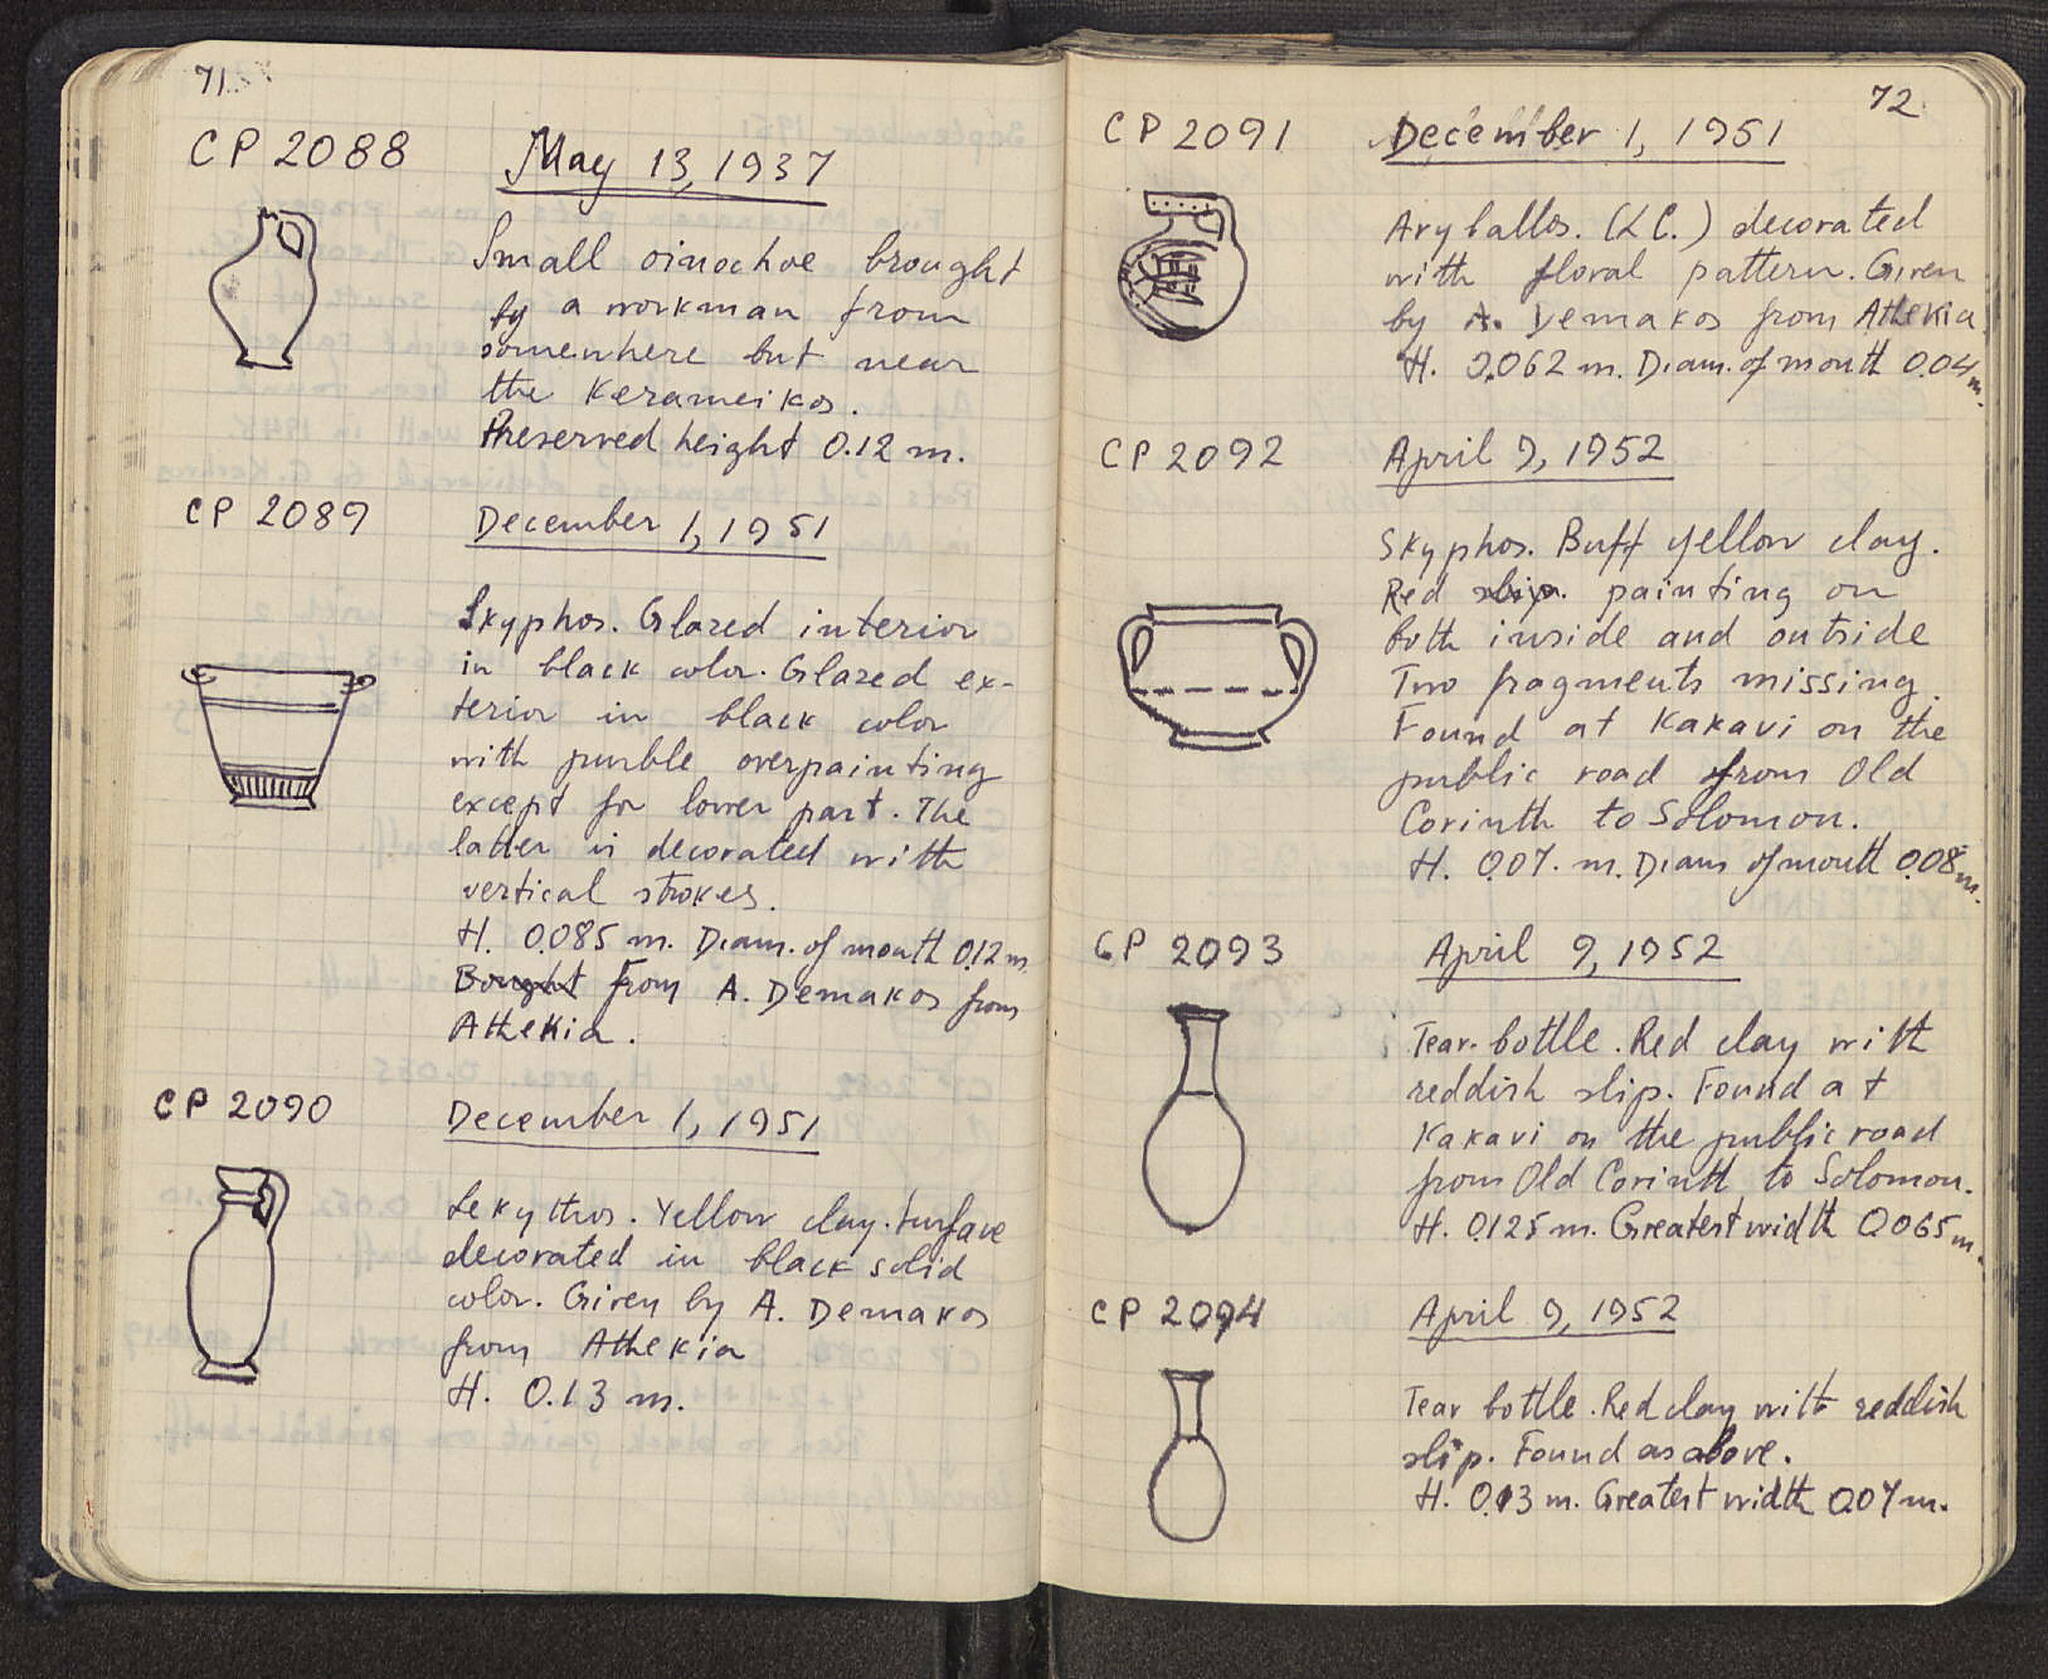 71
CP 2088
May 13, 1937
Small oinochoe brought
by a workman from
somewhere but near
the Kerameikos.
Preserved height 0.12 m.
CP 2089
December 1, 1951
Skyphos. Glazed interior
in black color. Glazed ex-
terior in black color
with purble overpainting
except for lower part. The
latter is decorated with
vertical strokes.
H. 0.085 m. Diam. of mouth 0.12 m.
Bought from A. Demakos from
Athekia.
CP 2090
December 1, 1951
Lekythos. Yellow clay. Surface
decorated in black solid
color. Given by A. Demakos
from Athekia
H. 0.13 m.
72
CP 2091
December 1, 1951
Aryballos. (LC.) decorated
with floral pattern. Given
by A. Demakos from Athekia
H. 0.062 m. Diam. of mouth 0.04 m.
CP 2092
April 9, 1952
Skyphos. Buff yellow clay.
Red slip. painting on
both inside and outside
Two fragments missing.
Found at Kakavi on the
public road from Old
Corinth to Solomon.
H. 0.07. m. Diam of mouth 0.08 m.
CP 2093
April 9, 1952
Tear-bottle. Red clay with
reddish slip. Found at
Kakavi on the public road
from Old Corinth to Solomon.
H. 0.125 m. Greatest width 0.065 m.
CP 2094
April 9, 1952
Tear bottle. Red clay with reddish
slip. Found as above.
H. 0.13 m. Greatest width 0.07 m.